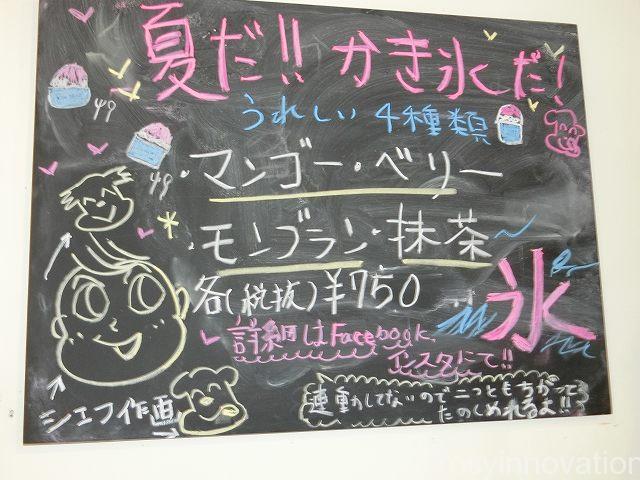 夏だ!! かき氷だ!
うれしい 4種類
・マンゴー・ベリー
・モンブラン・抹茶〜
各(税抜)¥750
氷
詳細はFacebook、
インスタにて!!
シェフ作画
連動してないので二つともちがって
たのしめれるよ!!
rosyinnovation